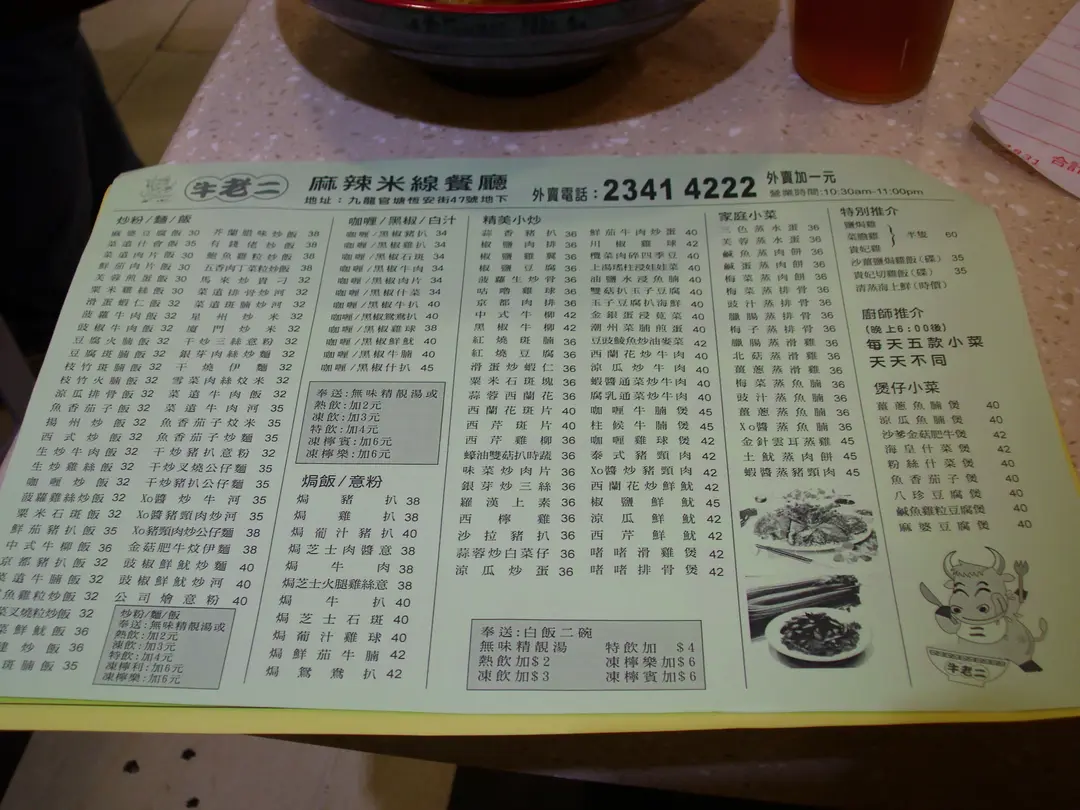 牛老二 麻辣米線餐廳 外賣電話：2341 4222 外賣加一元
地址：九龍官塘恆安街47號地下 營業時間:10:30am-11:00pm
炒粉/麵/飯
麻婆豆腐飯 30 芥蘭腊味炒飯 38
菜遠什會飯 35 有錢佬炒飯 38
菜遠肉片飯 30 鮑魚雞粒炒飯 38
鮮茄肉片飯 30 五香肉丁菜粒炒飯 38
芙蓉煎蛋飯 30 馬來炒貴刁 32
粟米雞絲飯 30 菜遠排骨炒河 32
滑蛋蝦仁飯 32 菜遠斑腩炒河 32
菠蘿牛肉飯 32 星州炒米 32
豉椒牛肉飯 32 廈門炒米 32
豆腐火腩飯 32 干炒三絲意粉 32
豆腐斑腩飯 32 銀芽肉絲炒麵 32
枝竹斑腩飯 32 干燒伊麵 32
枝竹火腩飯 32 雪菜肉絲炆米 32
涼瓜排骨飯 32 菜遠牛肉飯 32
魚香茄子飯 32 菜遠牛肉河 35
揚州炒飯 32 魚香茄子炆米 35
西式炒飯 32 魚香茄子炒麵 35
生炒牛肉飯 32 干炒豬扒意粉 32
生炒雞絲飯 32 干炒叉燒公仔麵 35
咖喱炒飯 32 干炒豬扒公仔麵 35
菠蘿雞絲炒飯 32 Xo醬炒牛河 35
粟米石斑飯 32 Xo醬豬頸肉炒河 35
鮮茄豬扒飯 35 Xo豬頸肉炒公仔麵 38
中式牛柳飯 36 金菇肥牛炆伊麵 38
京都豬扒飯 32 豉椒鮮魷炒麵 40
菜遠牛腩飯 32 豉椒鮮魷炒河 40
魚雞粒炒飯 32 公司燴意粉 40
菜叉燒粒炒飯 32
菜鮮魷飯 36
建炒飯 36
斑腩飯 35
炒粉/麵/飯
奉送:無味精靚湯或
熱飲:加2元
凍飲:加3元
特飲:加4元
凍檸利:加6元
凍檸樂:加6元
咖喱/黑椒/白汁
咖喱/黑椒豬扒 34
咖喱/黑椒雞扒 34
咖喱/黑椒石斑 34
咖喱/黑椒牛肉 34
咖喱/黑椒肉片 34
咖喱/黑椒什菜 34
咖喱/黑椒牛扒 40
咖喱/黑椒鴛鴦扒 40
咖喱/黑椒雞球 38
咖喱/黑椒鮮魷 40
咖喱/黑椒牛腩 40
咖喱/黑椒什扒 45
奉送:無味精靚湯或
熱飲:加2元
凍飲:加3元
特飲:加4元
凍檸賓:加6元
凍檸樂:加6元
焗飯/意粉
焗豬扒 38
焗雞扒 38
焗葡汁豬扒 40
焗芝士肉醬意 38
焗牛肉 38
焗芝士火腿雞絲意 38
焗牛扒 40
焗芝士石斑 40
焗葡汁雞球 40
焗鮮茄牛腩 42
焗鴛鴦扒 42
精美小炒
蒜香豬扒 36 鮮茄牛肉炒蛋 40
椒鹽肉排 36 川椒雞球 42
椒鹽雞翼 36 欖菜肉碎四季豆 40
椒鹽豆腐 36 上湯瑤柱浸娃娃菜 40
菠蘿生炒骨 36 油鹽水浸魚腩 40
咕嚕雞球 36 雙菇扒玉子豆腐 40
京都肉排 36 玉子豆腐扒海鮮 40
中式牛柳 42 金銀蛋浸莧菜 40
黑椒牛柳 42 潮州菜脯煎蛋 40
紅燒斑腩 36 豆豉鯪魚炒油麥菜 42
紅燒豆腐 36 西蘭花炒牛肉 40
滑蛋炒蝦仁 36 涼瓜炒牛肉 40
粟米石斑塊 36 蝦醬通菜炒牛肉 40
蒜蓉西蘭花 36 腐乳通菜炒牛肉 40
西蘭花斑片 40 咖喱牛腩煲 45
西芹斑片 40 柱候牛腩煲 45
西芹雞柳 36 咖喱雞球煲 42
蠔油雙菇扒時蔬 36 泰式豬頸肉 42
味菜炒肉片 36 Xo醬炒豬頸肉 42
銀芽炒三絲 36 西蘭花炒鮮魷 42
羅漢上素 36 椒鹽鮮魷 45
西檸雞 36 涼瓜鮮魷 42
沙拉豬扒 36 西芹鮮魷 42
蒜蓉炒白菜仔 36 啫啫滑雞煲 42
涼瓜炒蛋 36 啫啫排骨煲 42
奉送:白飯二碗
無味精靚湯 特飲加 $4
熱飲加$2 凍檸樂加$6
凍飲加$3 凍檸賓加$6
家庭小菜
三色蒸水蛋 36
芙蓉蒸水蛋 36
鹹魚蒸肉餅 36
鹹蛋蒸肉餅 36
梅菜蒸肉餅 36
梅菜蒸排骨 36
豉汁蒸排骨 36
臘腸蒸排骨 36
梅子蒸排骨 36
臘腸蒸滑雞 36
北菇蒸滑雞 36
薑蔥蒸滑雞 36
梅菜蒸魚腩 36
豉汁蒸魚腩 36
薑蔥蒸魚腩 36
Xo醬蒸魚腩 36
金針雲耳蒸雞 45
土魷蒸肉餅 45
蝦醬蒸豬頸肉 45
特別推介
鹽焗雞
菜膽雞 半隻 60
貴妃雞
沙薑鹽焗雞飯(碟) 35
貴妃切雞飯(碟) 35
清蒸海上鮮(時價)
廚師推介
(晚上6:00後)
每天五款小菜
天天不同
煲仔小菜
薑蔥魚腩煲 40
涼瓜魚腩煲 40
沙爹金菇肥牛煲 40
海皇什菜煲 40
粉絲什菜煲 40
魚香茄子煲 40
八珍豆腐煲 40
鹹魚雞粒豆腐煲 40
麻婆豆腐煲 40
牛老二